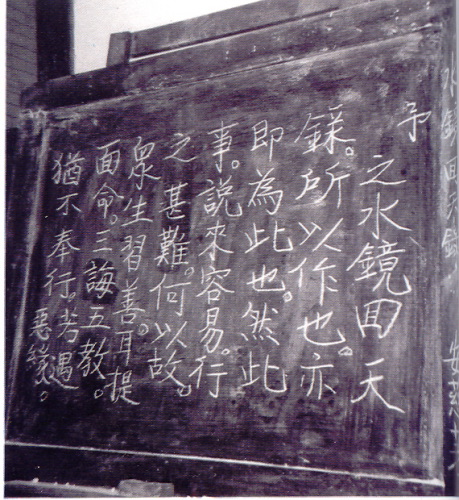 水鏡回天錄
予之水鏡回天
錄。所以作也。亦
即為此也。然此
事。說來容易。行
之甚難。何以故。
眾生習善。耳提
面命。三誨五教。
猶不奉行。若遇
惡緣。